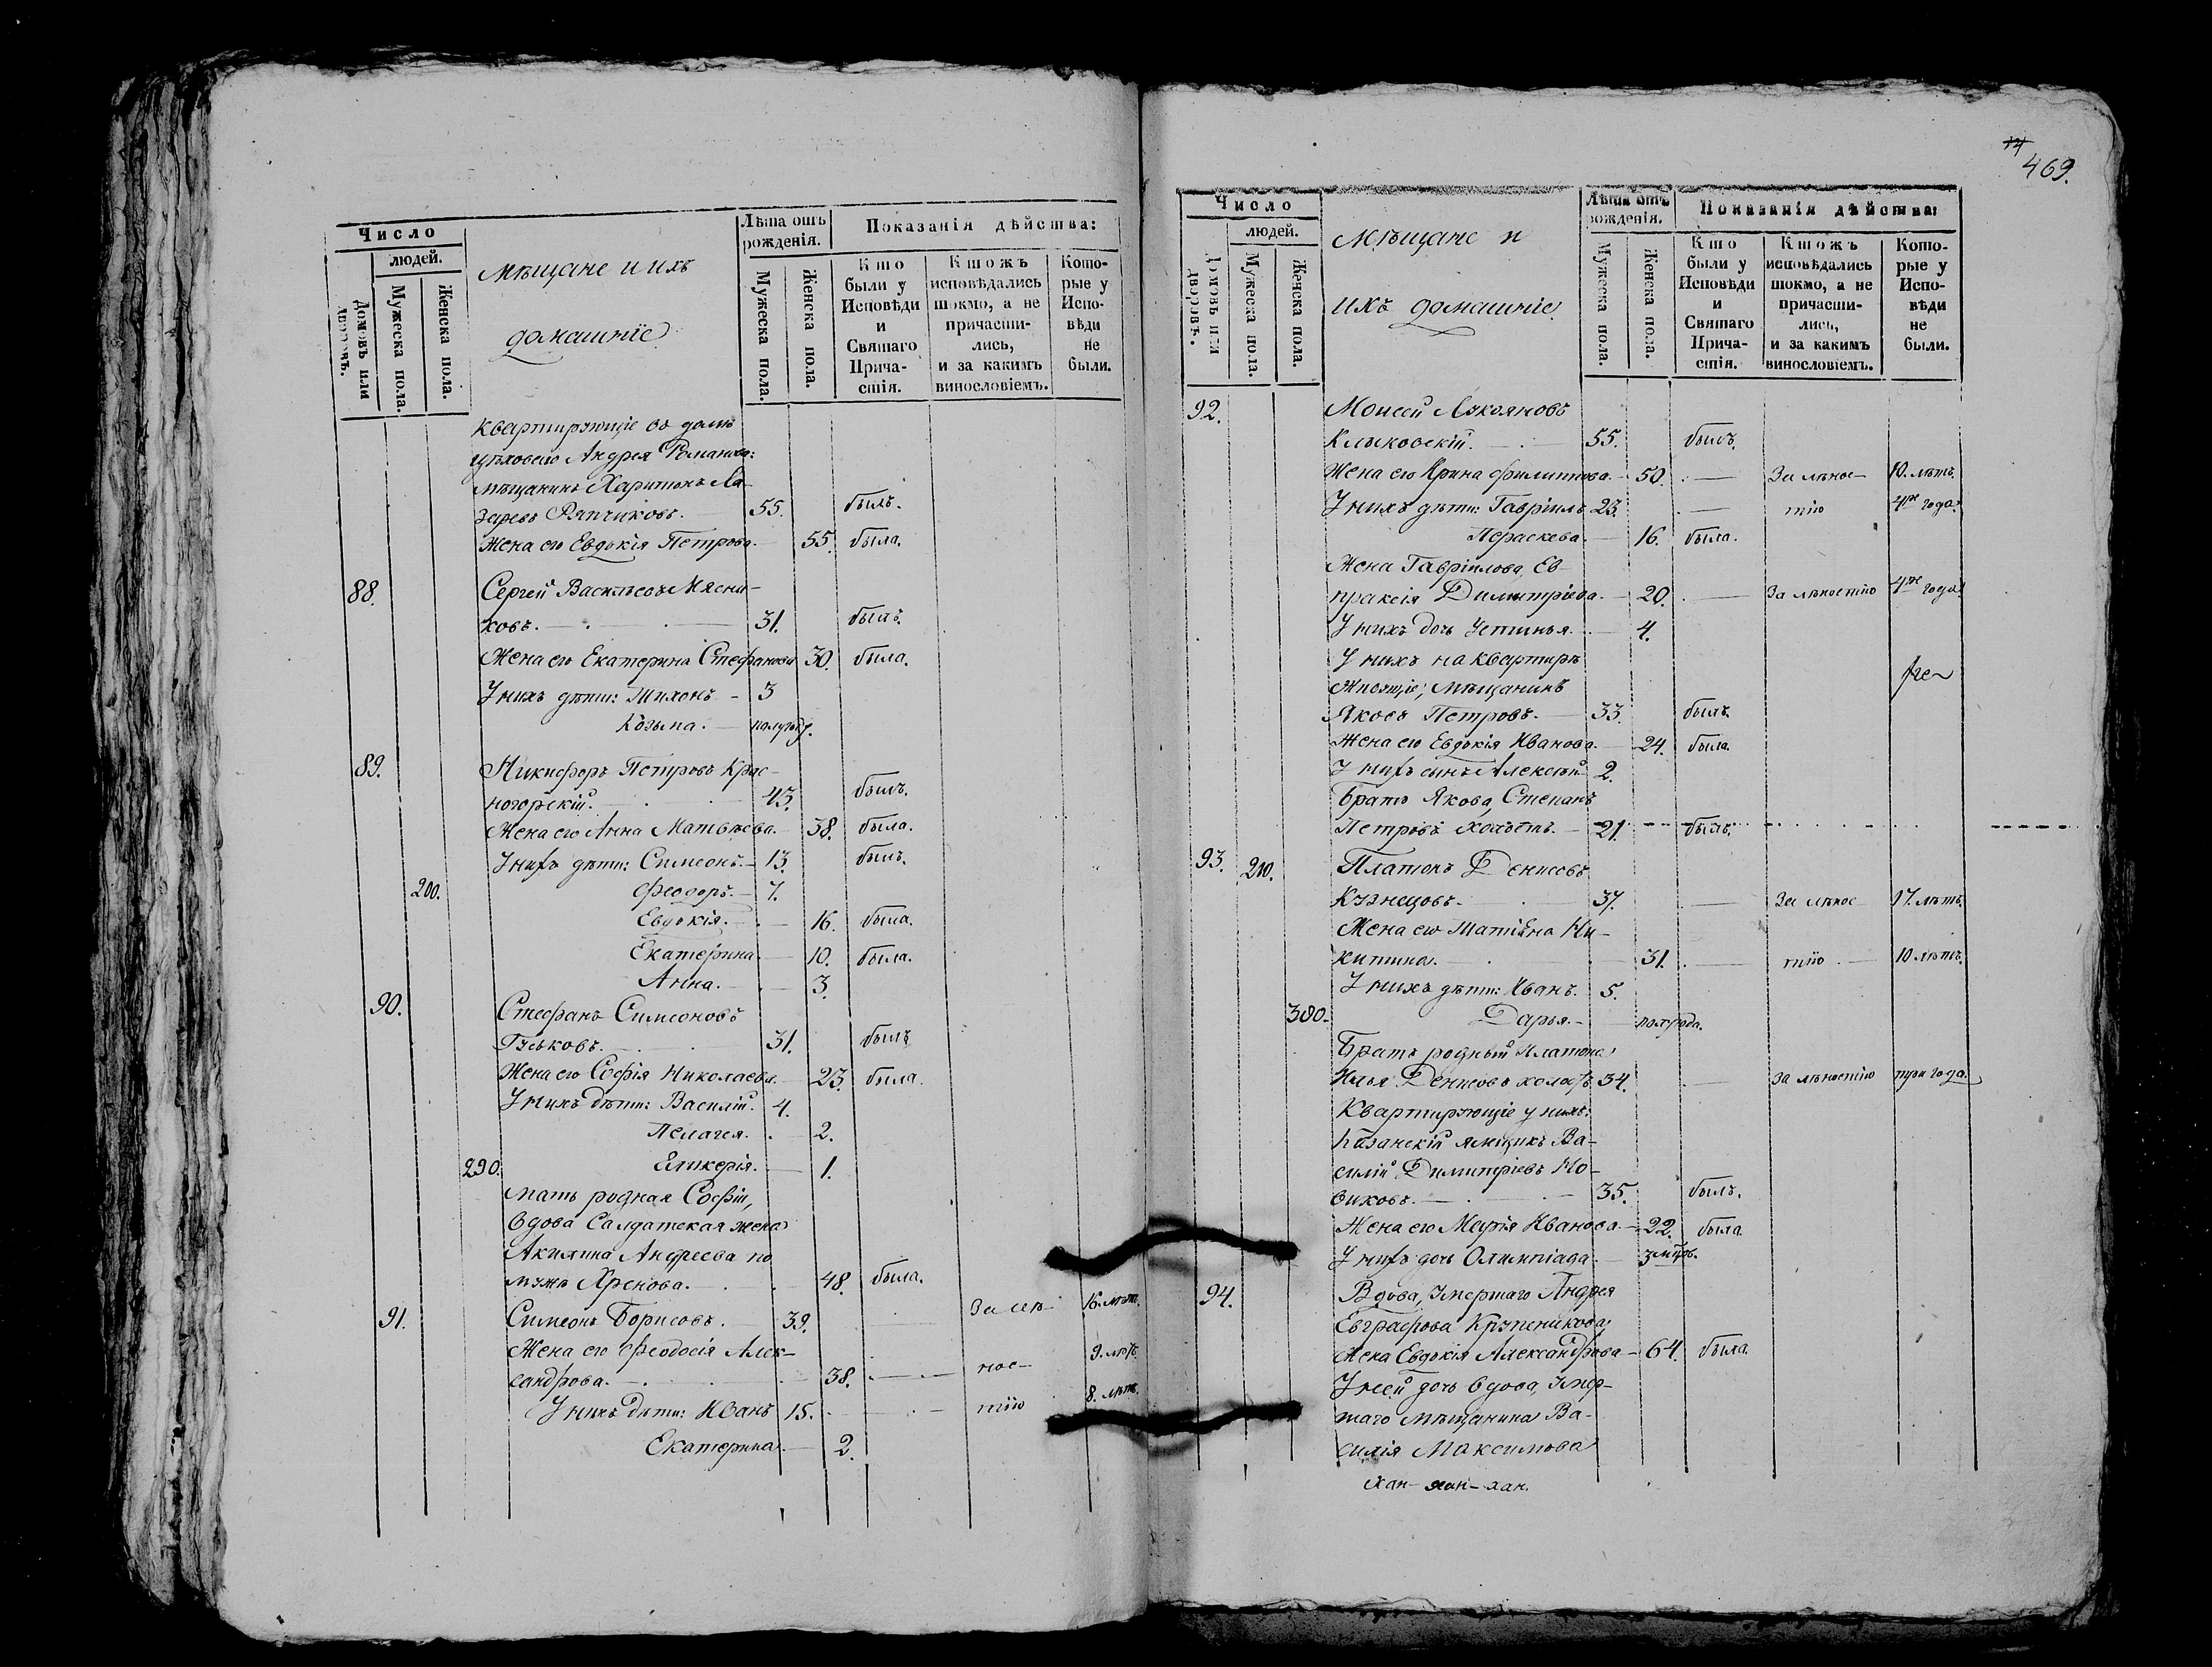 Число
людей.
Домовъ или дворовъ.
Мужеска пола.
Женска пола.
Мѣщане и ихъ
домашніе
Лѣта отъ рожденія.
Мужеска пола.
Женска пола.
Показанія дѣйства:
Кто были у Исповѣди и Святаго Причастія.
Ктожъ исповѣдались токмо, а не причастились, и за какимъ винословіемъ.
Которые у Исповѣди не были.
Квартирующіе въ домѣ
цѣховаго Андрея Романова:
мѣщанинъ Харитонъ Ла-
заревъ Ряпчиковъ. 55. былъ.
Жена его Евдокія Петрова. 55. была.
88. Сергей Васильевъ Мясни-
ковъ. 31. былъ.
Жена его Екатерина Стефанова 30. была.
У нихъ дѣти: Тихонъ - 3
Козьма. - полугод.
89. Никифоръ Петровъ Крас-
ногорскій. 43. былъ.
Жена его Анна Матвѣева. 38. была.
У нихъ дѣти: Симеонъ. - 13. былъ.
200. Феодоръ. - 7.
Евдокія. - 16. была.
Екатерина. - 10. была.
Анна. - 3.
90. Стефанъ Симеоновъ
Гуськовъ. 31. былъ
Жена его Софія Николаева. 23. была.
У нихъ дѣти: Василій. 4.
Пелагея. 2.
290. Гликерія. 1.
мать родная Софіи,
вдова Салдатская жена
Акилина Андреева по
мужѣ Хренова. 48. была.
91. Симеонъ Борисовъ. 39. За лѣ- 16. лѣтъ.
Жена его Феодосія Алек-
сандрова. 38. нос- 9. лѣтъ.
У нихъ дѣти: Иванъ 15. тію 8. лѣтъ.
Екатерина. 2.
469.
Число
людей.
Домовъ или дворовъ.
Мужеска пола.
Женска пола.
Мѣщане и
ихъ домашніе
Лѣта отъ рожденія.
Мужеска пола.
Женска пола.
Показанія дѣйства:
Кто были у Исповѣди и Святаго Причастія.
Ктожъ исповѣдались токмо, а не причастились, и за какимъ винословіемъ.
Которые у Исповѣди не были.
92. Моисей
55. былъ.
Жена его Ирина Филиппова - 50. За лѣнос- 10. лѣтъ.
У нихъ дѣти: Гавріилъ 23. тію 4ре года.
Параскева. - 16. была.
Жена Гавріилова, Ев-
праксія Димитріева. - 20. За лѣностію 4ре года
У нихъ дочь Устинья. - 4.
У нихъ на квартирѣ
Жи­вущіе; мѣщанинъ
Яковъ Петровъ. - 33. былъ.
Жена его Евдокія Иванова. - 24. была.
У нихъ сынъ Алексѣй 2.
Братъ Якова, Степанъ
Петровъ холостъ. - 21. былъ.
93. 210. Платонъ Денисовъ
Кузнецовъ. 37. За лѣнос 17. лѣтъ.
Жена его Татіяна Ни-
китина. 31. тію 10 лѣтъ.
У нихъ дѣти: Иванъ. 5.
300. Дарья. - полгода.
Братъ родный Платона
Илья Денисовъ холостъ. 34. за лѣностію три года.
Квартирующіе у нихъ:
Казанскій ямщикъ Ва-
силій Димитріевъ Но-
виковъ. 35. былъ.
Жена его Марія Иванова. - 22. была.
У нихъ дочь Олимпіада. - 3 мцов.
94. Вдова, умершаго Андрея
Евграфова Крупеникова
жена Евдокія Александрова - 64. была.
У ней дочь вдова, умер-
шаго мѣщанина Ва-
силія Максимова
хан- хан- хан.